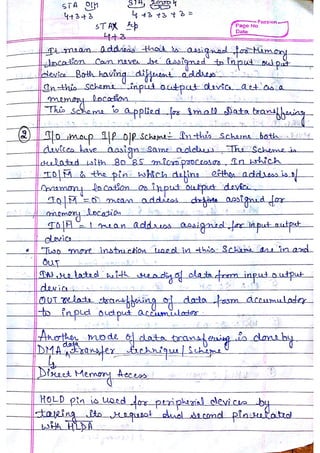 STA 01H STA,
4+3+3 4+3+3+3 =
STAX Rp
4+3
PAGE NO
Date
It mean address that is assigned for memory
location can never be assigned to input output
device Both having different address
In this scheme input output device act as a
memory location
This scheme is applied for small Data transffering
② I/O map I/P O/P Scheme:- In this scheme both
devices have assign same address. The scheme is
related with 80 85 microprocessor. In which
IO/M is the pin which define either address is of
memory location or input output device.
IO/M = 0 mean address assigned for
memory location
IO/M = 1 mean address assigned for input output
device
• Two more instruction used in this scheme are in and
OUT
IN related with reading of data from input output
device
OUT relate transffering of data from accumulator
to input output accumulator
Another mode of data transfering is done by
DMA data transfer technique/scheme.
Direct Memory Access
HOLD pin is used for peripheral devices by
taking its request and second pin related
with HLDA